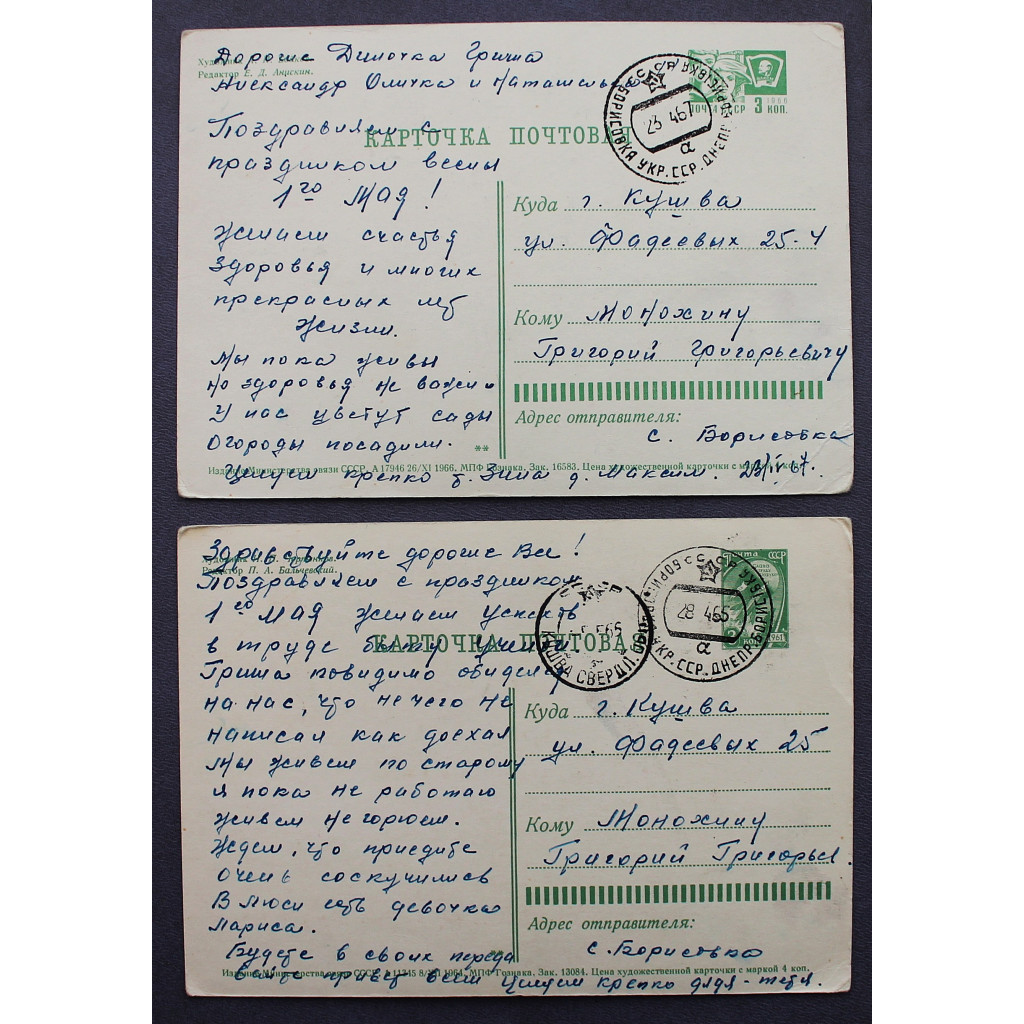 Дорогие Диночка Гриша
Редактор Е. Д. Анискин.
Александр Оличка и Наташенька
ПОЧТА СССР 1966 3 КОП.
БОРИСОВКА УКР. ССР. ДНЕПР.
23 467
а
Поздравляем с
КАРТОЧКА ПОЧТОВАЯ
праздником весны
1го МАЯ!
Желаем счастья
здоровья и многих
прекрасных лет
жизни.
Мы пока живы
но здоровья не важни
У нас цветут сады
Огороды посадили.
Куда г. Кушва
ул. Фадеевых 25-4
Кому Монохину
Григорий Григорьевичу
Адрес отправителя:
с. Борисовка
Издание Министерства связи СССР. А 17946 26/XI 1966. МПФ Гознака. Зак. 16583. Цена художественной карточки с маркой 4 коп.
Целуем крепко т. Зина д. Максим. 23/IV 67.
Здравствуйте дорогие Все!
Редактор П. А. Бальчевский.
Почта СССР
1961
БОРИСОВКА УКР. ССР. ДНЕПР.
28 465
а
КУШВА СВЕРДЛ. ОБЛ.
Поздравляем с праздником
1го МАЯ Желаем Успехов
КАРТОЧКА ПОЧТОВАЯ
в труде быту учении
Гриша повидимо обиделся
на нас, что не чего не
написал как доехал
Мы живем по старому
я пока не работаю
живем не горюем.
Ждем, что приедите
очень соскучились
В Люси есть девочка
Лариса.
Будете в своих переда
вайте привет всем Целуем крепко дядя - тетя.
Куда г. Кушва
ул. Фадеевых 25
Кому Монохину
Григорий Григорьев.
Адрес отправителя:
с. Борисовка
Издание Министерства связи СССР. А 11345 8/XII 1964. МПФ Гознака. Зак. 13084. Цена художественной карточки с маркой 4 коп.